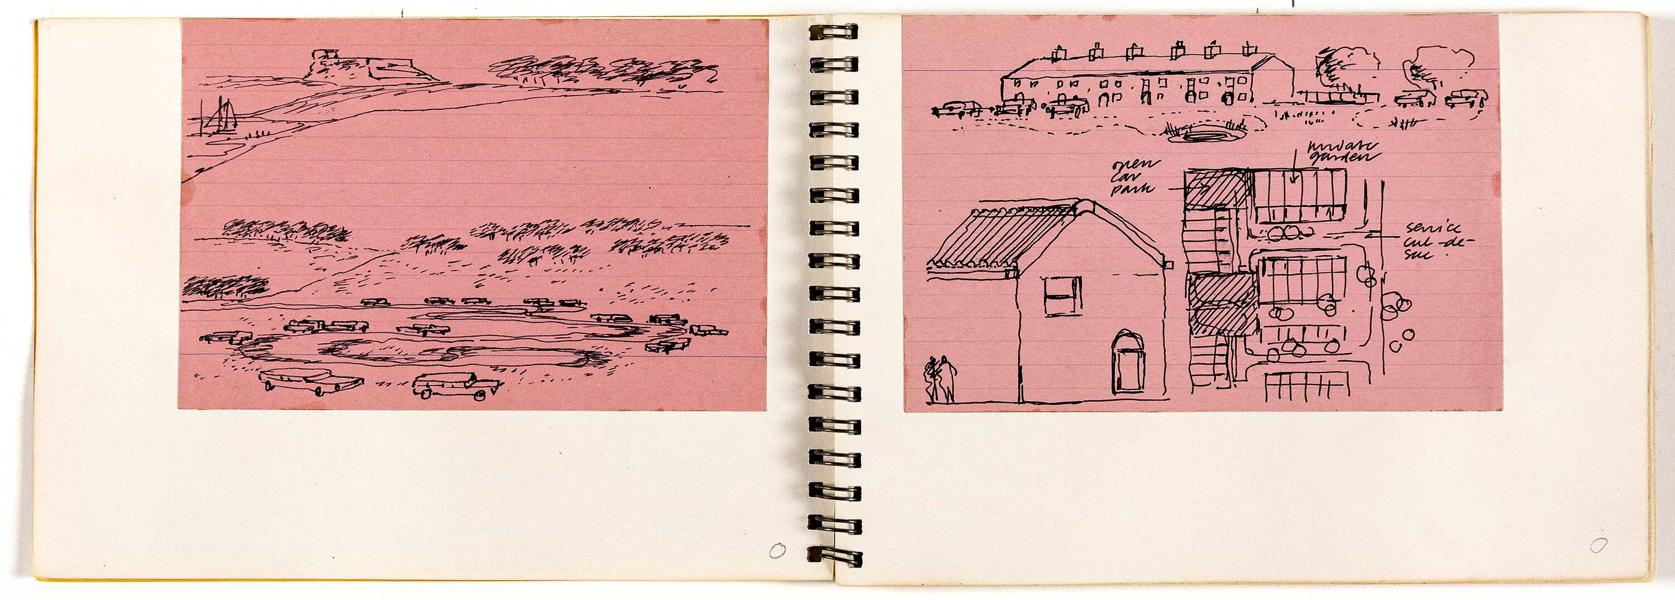 open
car
park
private
garden
service
cul-de-
sac.